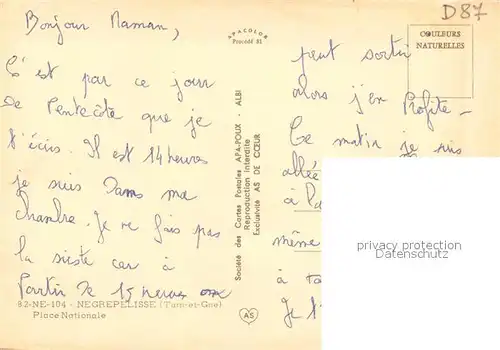 D87
Bonjour Maman,
C'est par ce jour
de Pentecôte que je
t'écris. Il est 14 heures
je suis Dans ma
chambre. Je ne fais pas
la sieste car à
Partir de 15 heures
82-NE-104 - NEGREPELISSE (Tarn-et-Gne)
Place Nationale
APACOLOR
Procédé 81
Société des Cartes Postales APA-POUX - ALBI
Reproduction interdite
Exclusivité AS DE CŒUR
AS
COULEURS
NATURELLES
peut sortir
alors j'en Profite -
Ce matin je suis
allée
à
même
à
Je
privacy protection
Datenschutz